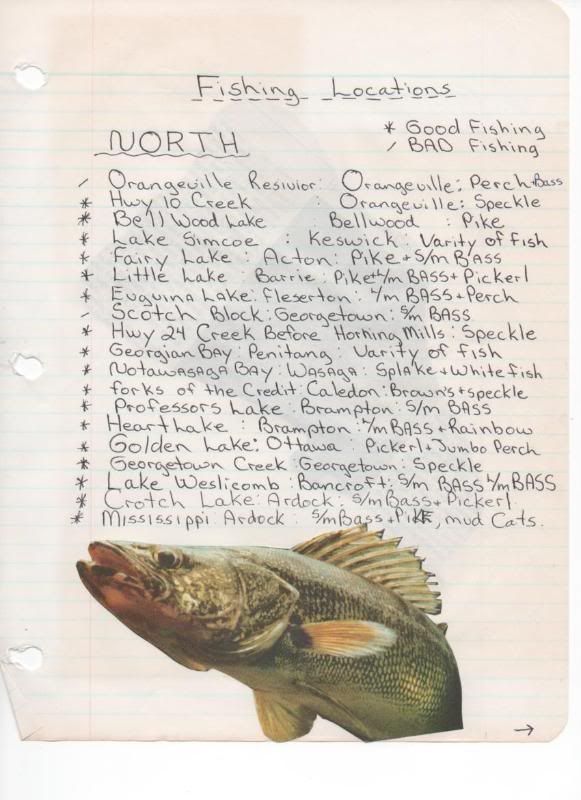 Fishing Locations
NORTH
* Good Fishing
/ BAD Fishing
/ Orangeville Resivior: Orangeville: Perch+Bass
* Hwy 10 Creek : Orangeville: Speckle
* Bell Wood Lake Bellwood : Pike
* Lake Simcoe : Keswick: Varity of fish
* Fairy Lake : Acton: Pike + S/m BASS
* Little Lake : Barrie: Pike+L/m BASS+Pickerl
* Euguina Lake: fleserton: L/m BASS+Perch
/ Scotch Block: Georgetown: S/m BASS
* Hwy 24 Creek Before Horning Mills: Speckle
* Georgian BAY: Penitang: Varity of fish
* Notawasaga BAY: Wasaga: Splake+Whitefish
* forks of the Credit: Caledon: Brown's+speckle
* Professors Lake: Brampton: S/m BASS
* Heart Lake : Brampton: L/m BASS+Rainbow
* Golden Lake: Ottawa: Pickerl+Jumbo Perch
* Georgetown Creek: Georgetown: Speckle
* Lake Weslicomb: Bancroft: S/m BASS L/m BASS
* Crotch Lake: Ardock: S/m Bass+Pickerl
* Mississippi: Ardock: S/m Bass+Pike, mud Cats.
→